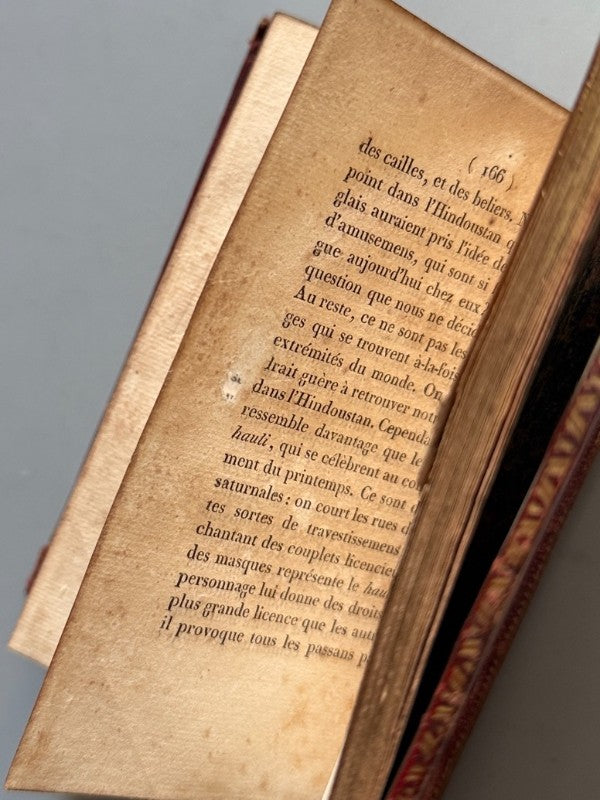 ( 166 )
des cailles, et des beliers.
point dans l'Hindoustan
glais auraient pris l'idée de
d'amusemens, qui sont si
gue aujourd'hui chez eux
question que nous ne
Au reste, ce ne sont pas les
ges qui se trouvent à-la-fois
extrémités du monde. On
drait guère à retrouver
dans l'Hindoustan.
ressemble davantage que le
hauli, qui se célèbrent au
ment du printemps. Ce sont
saturnales : on court les rues
tes sortes de travestissemens
chantant des couplets
des masques représente le
personnage lui donne des droits
plus grande licence que les
il provoque tous les passans